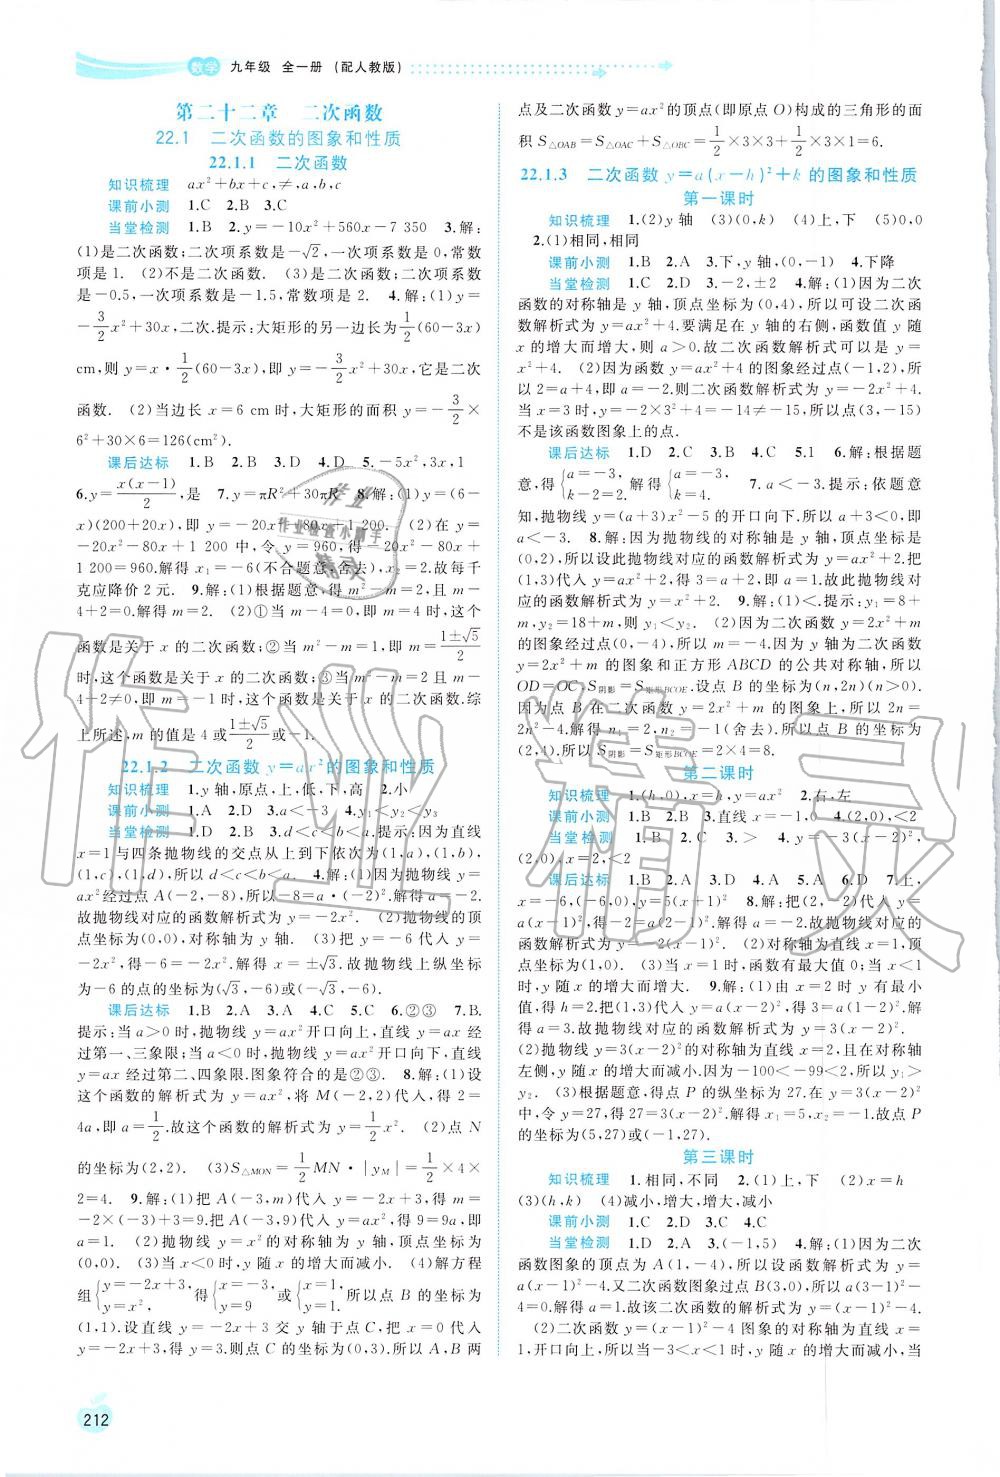 数学 九年级 全一册 (配人教版)
第二十二章 二次函数
22.1 二次函数的图象和性质
22.1.1 二次函数
知识梳理 ax²+bx+c,≠,a,b,c
课前小测 1.C 2.B 3.C
当堂检测 1.B 2.y=-10x²+560x-7 350 3.解:
(1)是二次函数;二次项系数是-√2,一次项系数是0,常数
项是1. (2)不是二次函数. (3)是二次函数;二次项系数
是-0.5,一次项系数是-1.5,常数项是2. 4.解:(1)y=
-3/2x²+30x,二次.提示:大矩形的另一边长为1/2(60-3x)
cm,则y=x·1/2(60-3x),即y=-3/2x²+30x,它是二次
函数. (2)当边长x=6 cm时,大矩形的面积y=-3/2×
6²+30×6=126(cm²).
课后达标 1.B 2.B 3.D 4.D 5.-5x²,3x,1
6.y=x(x-1)/2,是 7.y=πR²+30πR 8.解:(1)y=(6-
x)(200+20x),即y=-20x²-80x+1 200. (2)在y=
-20x²-80x+1 200中,令y=960,得-20x²-80x+
1 200=960.解得x₁=-6(不合题意,舍去),x₂=2.故每千
克应降价2元. 9.解:(1)根据题意,得m²-m≠0且m-
4+2=0.解得m=2. (2)①当m-4=0,即m=4时,这个
函数是关于x的二次函数;②当m²-m=1,即m=(1±√5)/2
时,这个函数是关于x的二次函数;③当m²-m=0且m-
4-2≠0,即m=-1时,这个函数是关于x的二次函数.综
上所述,m的值是4或(1±√5)/2或-1.
22.1.2 二次函数y=ax²的图象和性质
知识梳理 1.y轴,原点,上,低,下,高 2.小
课前小测 1.A 2.D 3.a<-3 4.y₁<y₂<y₃
当堂检测 1.D 2.B 3.d<c<b<a.提示:因为直线
x=1与四条抛物线的交点从上到下依次为(1,a),(1,b),
(1,c),(1,d),所以d<c<b<a. 4.解:(1)因为抛物线
y=ax²经过点A(-2,-8),所以-8=a·(-2)².解得a=-2.
故抛物线对应的函数解析式为y=-2x². (2)抛物线的顶
点坐标为(0,0),对称轴为y轴. (3)把y=-6代入y=
-2x²,得-6=-2x².解得x=±√3.故抛物线上纵坐标
为-6的点的坐标为(√3,-6)或(-√3,-6).
课后达标 1.B 2.A 3.A 4.C 5.C 6.②③ 7.B.
提示:当a>0时,抛物线y=ax²开口向上,直线y=ax经
过第一、三象限;当a<0时,抛物线y=ax²开口向下,直线
y=ax经过第二、四象限.图象符合的是②③. 8.解:(1)设
这个函数的解析式为y=ax².将M(-2,2)代入,得2=
4a,即a=1/2.故这个函数的解析式为y=1/2x². (2)点N
的坐标为(2,2). (3)S△MON=1/2MN·|yM|=1/2×4×
2=4. 9.解:(1)把A(-3,m)代入y=-2x+3,得m=
-2×(-3)+3=9. (2)把A(-3,9)代入y=ax²,得9=9a,即
a=1. (3)抛物线y=x²的对称轴为y轴,顶点坐标为
(0,0).当x<0时,y随x的增大而减小. (4)解方程
组{y=-2x+3,y=x². 得{x=-3,y=9 或{x=1,y=1. 所以点B的坐标为
(1,1).设直线y=-2x+3交y轴于点C,把x=0代入
y=-2x+3,得y=3.则点C的坐标为(0,3).所以A,B两
点及二次函数y=ax²的顶点(即原点O)构成的三角形的面
积S△OAB=S△OAC+S△OBC=1/2×3×3+1/2×3×1=6.
22.1.3 二次函数y=a(x-h)²+k的图象和性质
第一课时
知识梳理 1.(2)y轴 (3)(0,k) (4)上,下 (5)0,0
2.(1)相同,相同
课前小测 1.B 2.A 3.下,y轴,(0,-1) 4.下降
当堂检测 1.B 2.D 3.-2,±2 4.解:(1)因为二次
函数的对称轴是y轴,顶点坐标为(0,4),所以可设二次函
数解析式为y=ax²+4.要满足在y轴的右侧,函数值y随
x的增大而增大,则a>0.故二次函数解析式可以是y=
x²+4. (2)因为二次函数y=ax²+4的图象经过点(-1,2),所
以2=a+4,即a=-2.则二次函数解析式为y=-2x²+4.
当x=3时,y=-2×3²+4=-14≠-15,所以点(3,-15)
不是该函数图象上的点.
课后达标 1.D 2.C 3.B 4.C 5.1 6.解:根据题
意,得{a=-3,k-2=0. 解得{a=-3,k=2. 7.a<-3.提示:依题意可
知,抛物线y=(a+3)x²-5的开口向下.所以a+3<0,即
a<-3. 8.解:因为抛物线的对称轴是y轴,顶点坐标是
(0,2),所以设此抛物线对应的函数解析式为y=ax²+2.把
(1,3)代入y=ax²+2,得3=a+2,即a=1.故此抛物线对
应的函数解析式为y=x²+2. 9.解:(1)<.提示:y₁=8+
m,y₂=18+m,则y₁<y₂. (2)因为二次函数y=2x²+m
的图象经过点(0,-4),所以m=-4.因为y轴为二次函数
y=2x²+m的图象和正方形ABCD的公共对称轴,所以
OD=OC,S阴影=S矩形BCOE.设点B的坐标为(n,2n)(n>0).
因为点B在二次函数y=2x²-4的图象上,所以2n=
2n²-4.解得n₁=2,n₂=-1(舍去).所以点B的坐标为
(2,4).所以S阴影=S矩形BCOE=2×4=8.
第二课时
知识梳理 1.(h,0),x=h,y=ax² 2.右,左
课前小测 1.B 2.B 3.直线x=-1,0 4.(2,0),<2
当堂检测 1.B 2.C 3.> 4.y=-3(x-2)²,
(2,0)x=2,<2
课后达标 1.B 2.A 3.B 4.A 5.A 6.D 7.上,
x=-6,(-6,0),y=5(x+1)² 8.解:把(2,-2)代入y=
a(x-1)²,得-2=a(2-1)².解得a=-2.故抛物线对应的
函数解析式为y=-2(x-1)². (2)对称轴为直线x=1,顶
点坐标为(1,0). (3)当x=1时,函数有最大值0;当x<1
时,y随x的增大而增大. 9.解:(1)因为当x=2时,y有最小
值,得h=2.把(1,3)代入y=a(x-2)²,得3=a(1-2)².解
得a=3.故抛物线对应的函数解析式为y=3(x-2)².
(2)抛物线y=3(x-2)²的对称轴为直线x=2,且在对称轴
左侧,y随x的增大而减小.因为-100<-99<2,所以y₁>
y₂. (3)根据题意,得点P的纵坐标为27.在y=3(x-2)²
中,令y=27,得27=3(x-2)².解得x₁=5,x₂=-1.故点P
的坐标为(5,27)或(-1,27).
第三课时
知识梳理 1.相同,不同 2.(1)上,下 (2)x=h
(3)(h,k) (4)减小,增大,增大,减小
课前小测 1.C 2.D 3.C 4.C
当堂检测 1.D 2.A 3.(-1,5) 4.解:(1)因为二次
函数图象的顶点为A(1,-4),所以设二次函数解析式为y=
a(x-1)²-4.又二次函数图象过点B(3,0),所以a(3-1)²-
4=0.解得a=1.故该二次函数的解析式为y=(x-1)²-4.
(2)二次函数y=(x-1)²-4图象的对称轴为直线x=
1,开口向上.所以当-3<x<1时,y随x的增大而减小,当
212
作业
作业检查小助手
作业精灵